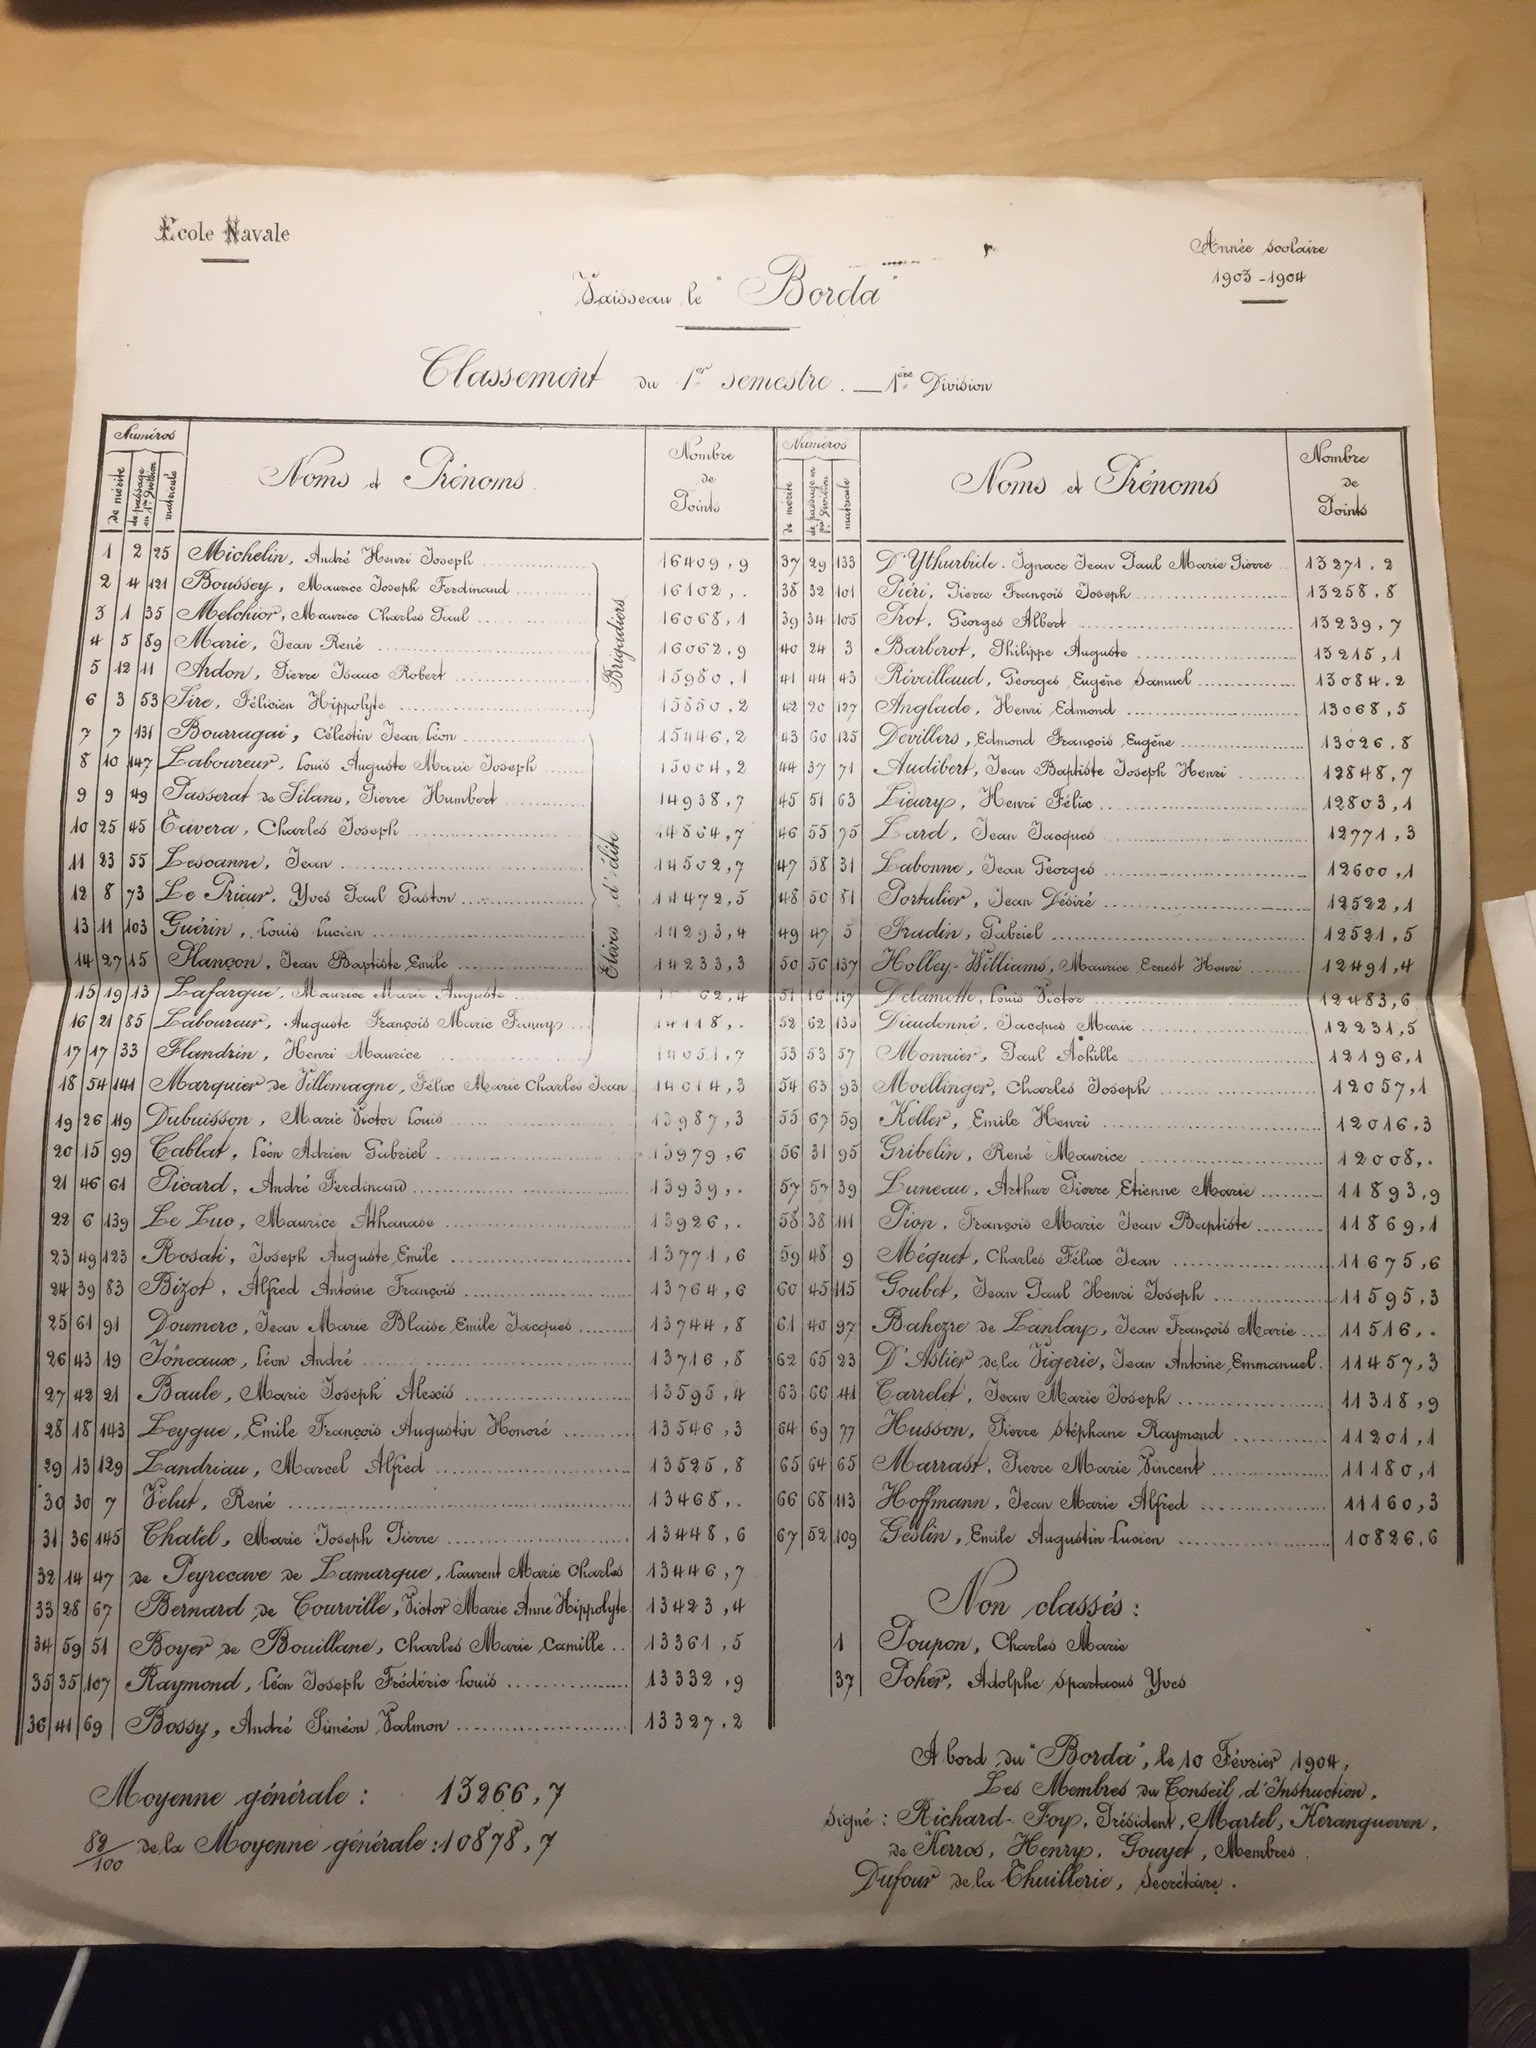 Ecole Navale
Année scolaire
1903-1904
Vaisseau le "Borda"
Classement du 1er semestre. — 1ère Division
Numéros
de mérite
de passage en 1ère Division
matricule
Noms et Prénoms
Nombre de Points
1 2 25 Michelin, André Henri Joseph 16409,9
2 4 121 Boussey, Maurice Joseph Ferdinand 16102,.
3 1 35 Melchior, Maurice Charles Paul 16068,1
4 5 89 Marie, Jean René 16062,9
5 12 11 Ardon, Pierre Isaac Robert 15980,1
6 3 53 Sire, Félicien Hippolyte 15850,2
Brigadiers
7 7 131 Bourragué, Célestin Jean Léon 15446,2
8 10 147 Laboureur, Louis Auguste Marie Joseph 15004,2
9 9 49 Passerat de Silans, Pierre Humbert 14938,7
10 25 45 Tavera, Charles Joseph 14864,7
11 23 55 Lescanne, Jean 14502,7
12 8 73 Le Prieur, Yves Paul Gaston 14472,5
13 11 103 Guérin, Louis Lucien 14293,4
14 27 15 Plançon, Jean Baptiste Emile 14233,3
15 19 13 Lafargue, Maurice Marie Auguste 62,4
16 21 85 Laboureur, Auguste François Marie Fanny 14118,.
17 17 33 Flandrin, Henri Maurice 14051,7
Elèves d'élite
18 54 141 Marquier de Villemagne, Félix Marie Charles Jean 14014,3
19 26 119 Dubuisson, Marie Victor Louis 13987,3
20 15 99 Cablat, Léon Adrien Gabriel 13979,6
21 46 61 Picard, André Ferdinand 13939,.
22 6 139 Le Luc, Maurice Athanase 13926,.
23 49 123 Rosati, Joseph Auguste Emile 13771,6
24 39 83 Bizot, Alfred Antoine François 13764,6
25 61 91 Doumerc, Jean Marie Blaise Emile Jacques 13744,8
26 43 19 Joneaux, Léon André 13716,8
27 42 21 Baule, Marie Joseph Alexis 13595,4
28 18 143 Leygue, Emile François Augustin Honoré 13546,3
29 13 129 Landriau, Marcel Alfred 13525,8
30 30 7 Velut, René 13468,.
31 36 145 Chatel, Marie Joseph Pierre 13448,6
32 14 47 de Peyrecave de Lamarque, Laurent Marie Charles 13446,7
33 28 67 Bernard de Courville, Victor Marie Anne Hippolyte 13423,4
34 59 51 Boyer de Bouillane, Charles Marie Camille 13361,5
35 35 107 Raymond, Léon Joseph Frédéric Louis 13332,9
36 41 69 Bossy, André Siméon Valmon 13327,2
Moyenne générale : 13266,7
82/100 de la Moyenne générale : 10878,7
Numéros
de mérite
de passage en 1ère Division
matricule
Noms et Prénoms
Nombre de Points
37 29 133 D'Ythurbide, Ignace Jean Paul Marie Pierre 13271,2
38 32 101 Piéri, Pierre François Joseph 13258,8
39 34 105 Prot, Georges Albert 13239,7
40 24 3 Barberot, Philippe Auguste 13215,1
41 44 43 Réveillaud, Georges Eugène Samuel 13084,2
42 20 127 Anglade, Henri Edmond 13068,5
43 60 125 Devillers, Edmond François Eugène 13026,8
44 37 71 Audibert, Jean Baptiste Joseph Henri 12848,7
45 51 63 Lieury, Henri Félix 12803,1
46 55 75 Lard, Jean Jacques 12771,3
47 58 31 Labonne, Jean Georges 12600,1
48 50 81 Portalier, Jean Désiré 12522,1
49 47 5 Fradin, Gabriel 12521,5
50 56 137 Holley-Williams, Maurice Ernest Henri 12491,4
51 16 117 Delamette, Louis Victor 12483,6
52 62 135 Dieudonné, Jacques Marie 12231,5
53 53 57 Monnier, Paul Achille 12196,1
54 63 93 Moellinger, Charles Joseph 12057,1
55 67 59 Keller, Emile Henri 12016,3
56 31 95 Gribelin, René Maurice 12008,.
57 57 39 Luneau, Arthur Pierre Etienne Marie 11893,9
58 38 111 Pion, François Marie Jean Baptiste 11869,1
59 48 9 Méquet, Charles Félix Jean 11675,6
60 45 115 Goubet, Jean Paul Henri Joseph 11595,3
61 40 97 Bahezre de Lanlay, Jean François Marie 11516,.
62 65 23 D'Astier de la Vigerie, Jean Antoine Emmanuel 11457,3
63 66 41 Carrelet, Jean Marie Joseph 11318,9
64 69 77 Husson, Pierre Stéphane Raymond 11201,1
65 64 65 Marrast, Pierre Marie Vincent 11180,1
66 68 113 Hoffmann, Jean Marie Alfred 11160,3
67 52 109 Geslin, Emile Augustin Lucien 10826,6
Non classés :
1 Poupon, Charles Marie
37 Poher, Adolphe Spartacus Yves
A bord du "Borda", le 10 Février 1904,
Les Membres du Conseil d'Instruction,
Signé : Richard-Foy, Président, Martel, Kerangueven,
de Kerros, Henry, Gouyet, Membres.
Dufour de la Thuillerie, Secrétaire.